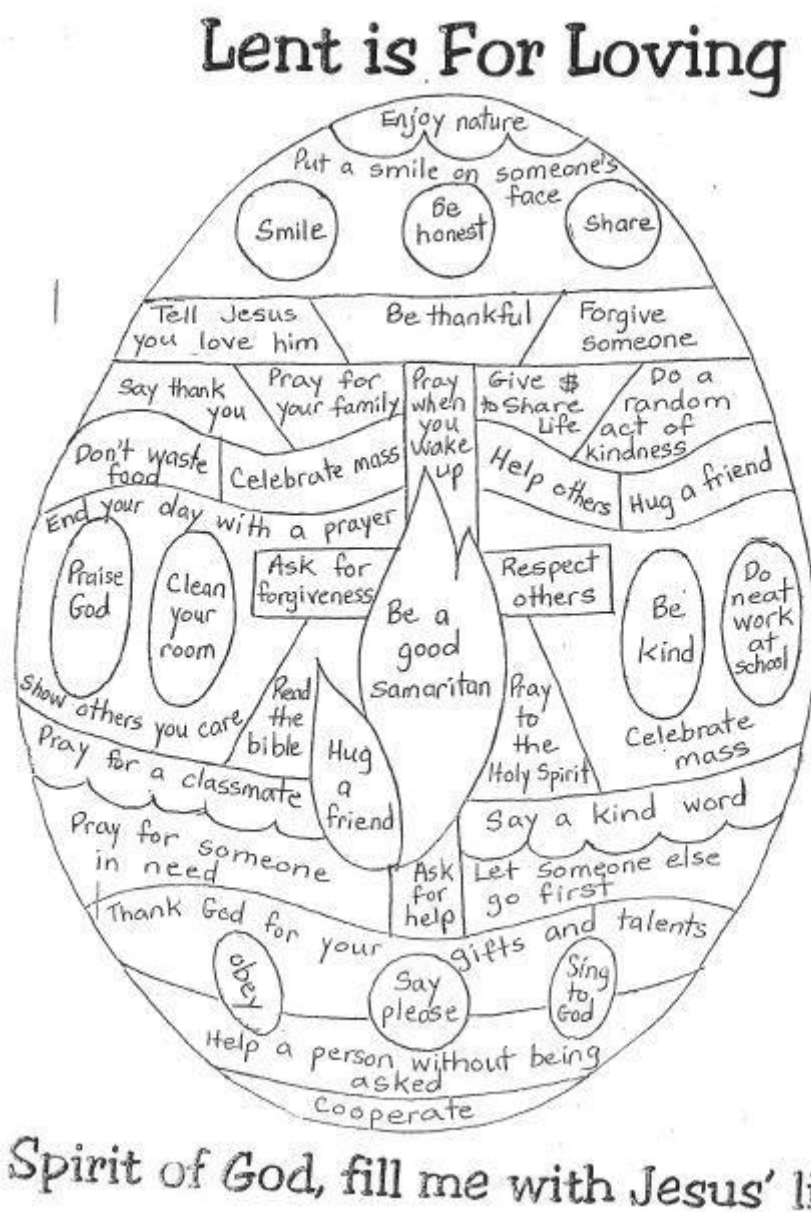 Lent is For Loving
Enjoy nature
Put a smile on someone's
face
Smile
Be
honest
Share
Tell Jesus
you love him
Be thankful
Forgive
someone
Say thank
you
Pray for
your family
Pray
when
you
wake
up
Give $
to Share
Life
Do a
random
act of
kindness
Don't waste
food
Celebrate mass
Help others
Hug a friend
End your day with a prayer
Praise
God
Clean
your
room
Ask for
forgiveness
Be a
good
samaritan
Respect
others
Be
kind
Do
neat
work
at
school
Show others you care
Read
the
bible
Hug
a
friend
Pray
to
the
Holy Spirit
Celebrate
mass
Pray for a classmate
Say a kind word
Pray for someone
in need
Ask
for
help
Let someone else
go first
Thank God for your gifts and talents
obey
Say
please
Sing
to
God
Help a person without being
asked
Cooperate
Spirit of God, fill me with Jesus'